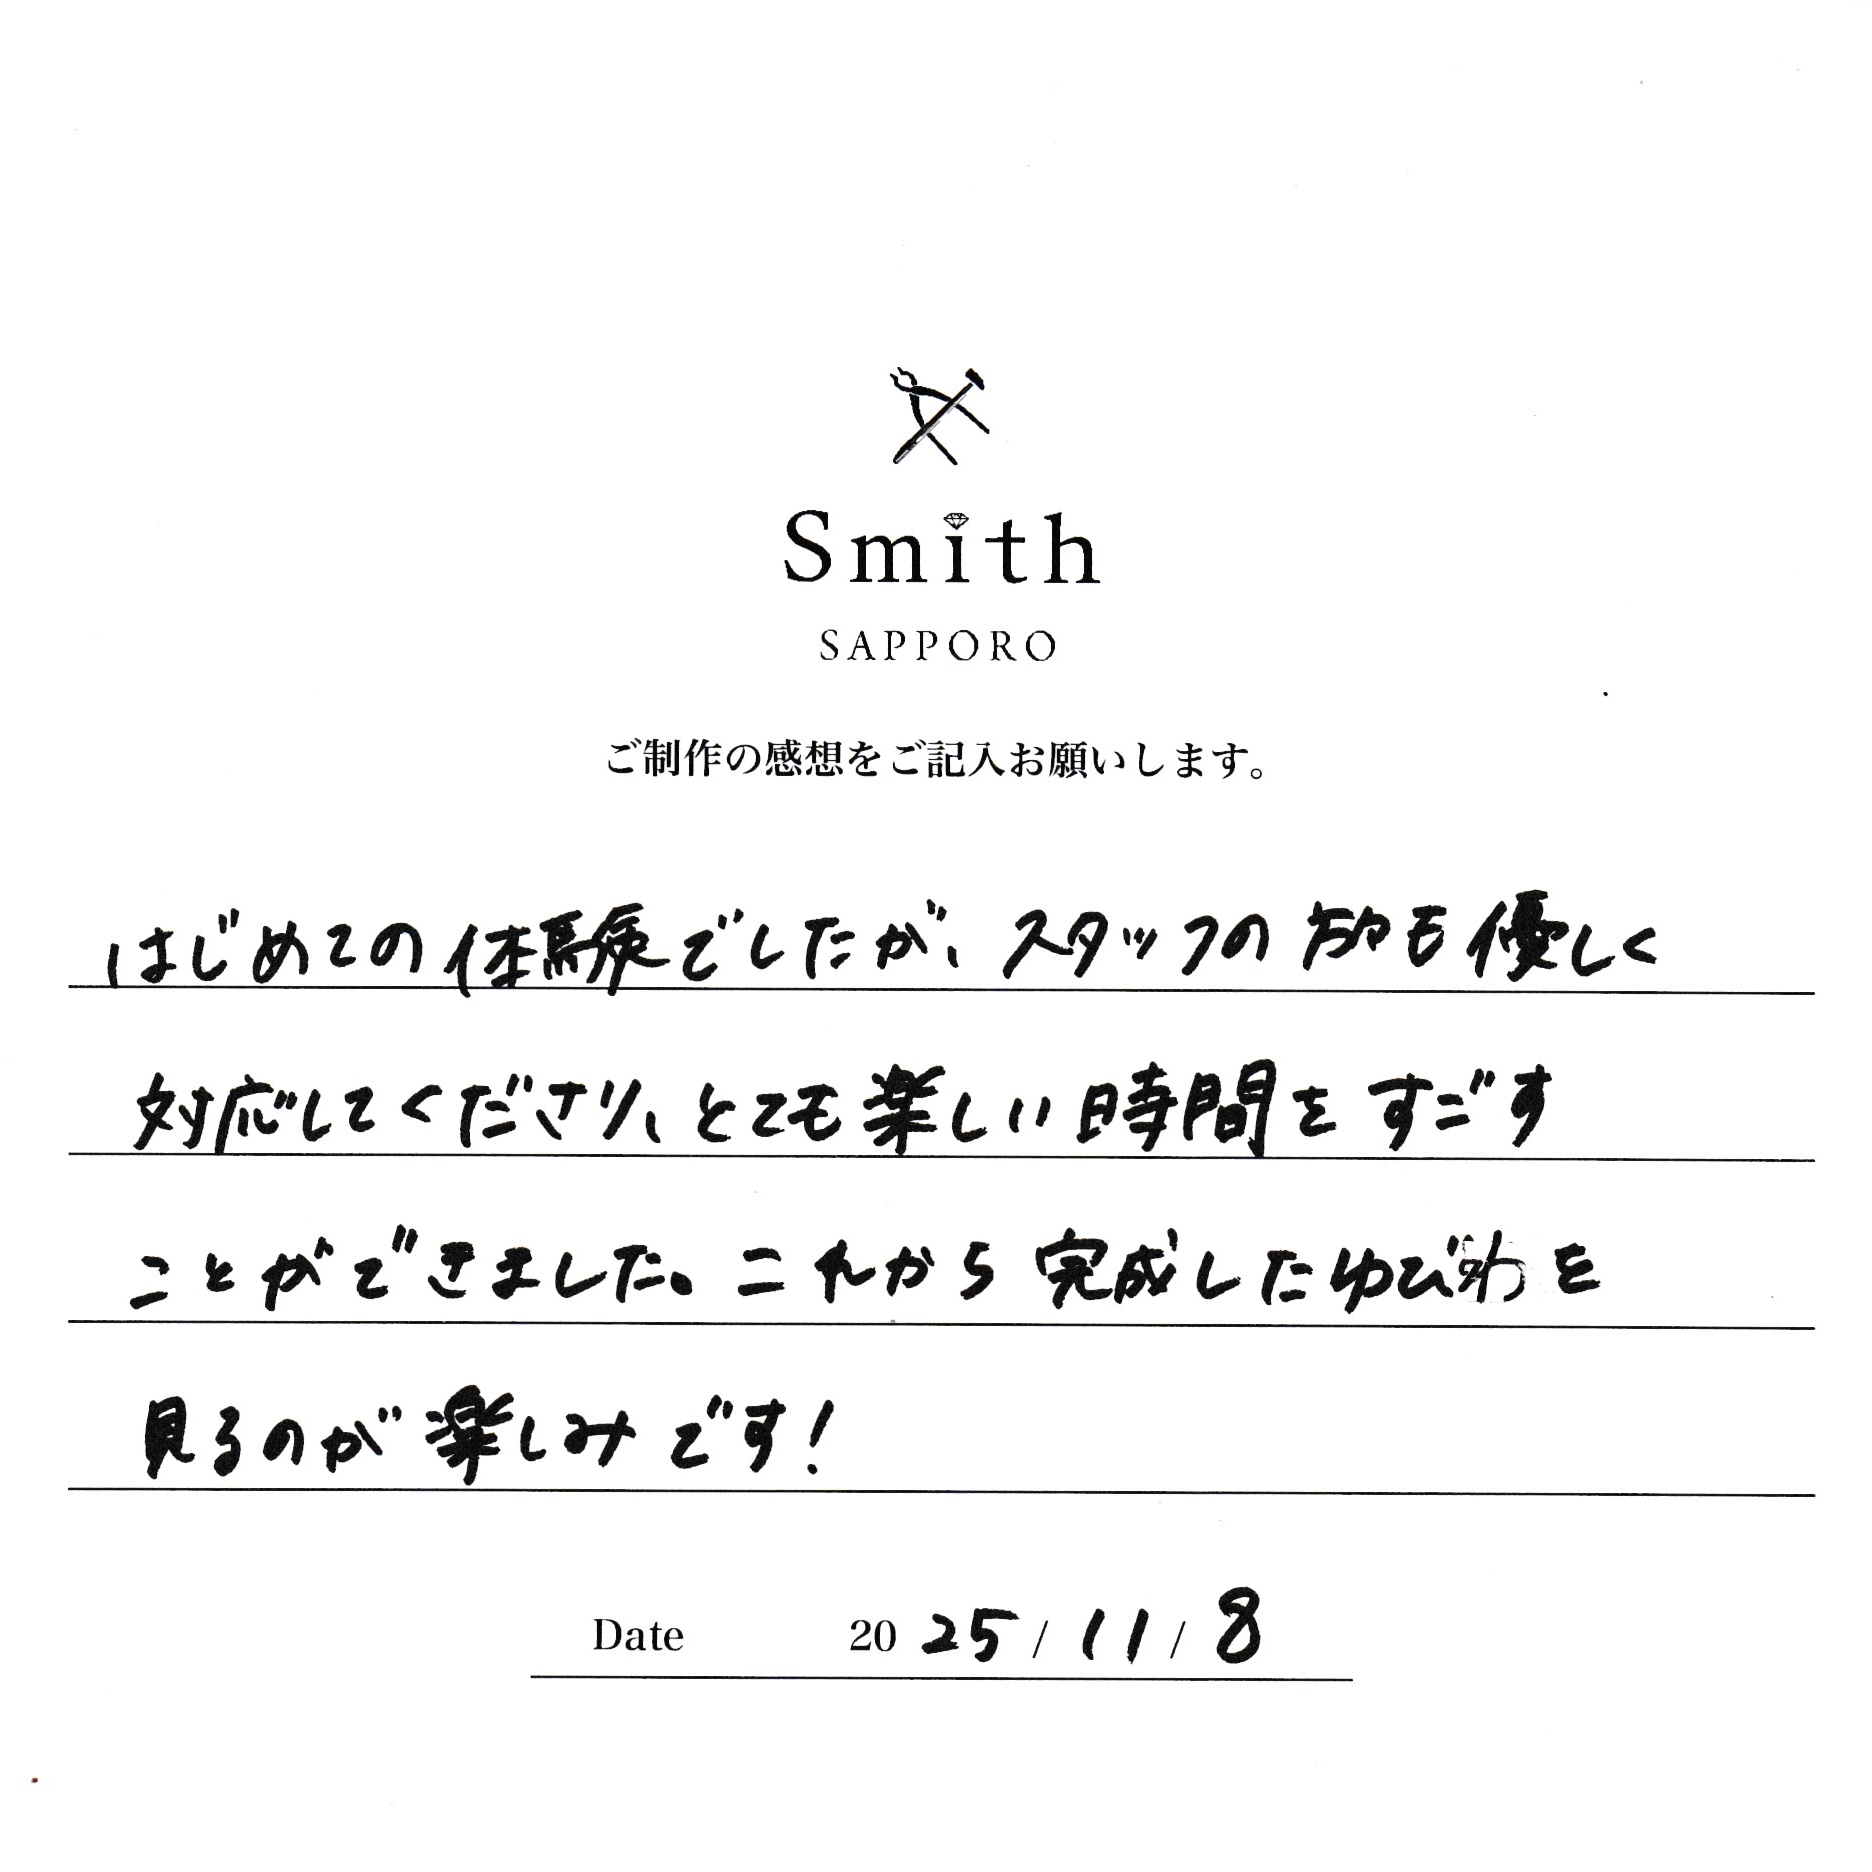 Smith
SAPPORO
ご制作の感想をご記入お願いします。
はじめての体験でしたが、スタッフの方も優しく
対応してくださり、とても楽しい時間をすごす
ことができました。これから完成したゆびわを
見るのが楽しみです!
Date 2025/11/8